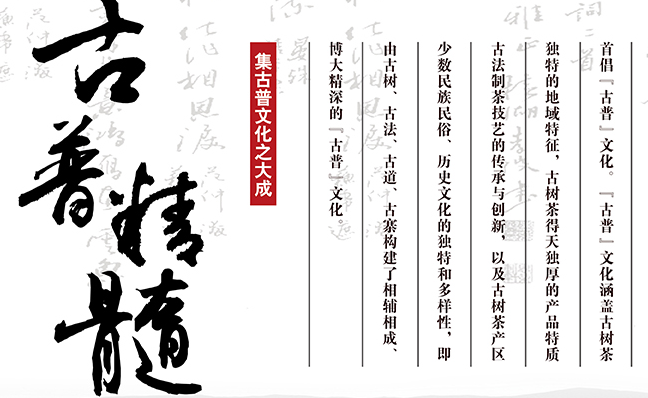 古普精髓
集古普文化之大成
首倡『古普』文化。『古普』文化涵盖古树茶
独特的地域特征，古树茶得天独厚的产品特质
古法制茶技艺的传承与创新，以及古树茶产区
少数民族民俗、历史文化的独特和多样性，即
由古树、古法、古道、古寨构建了相辅相成、
博大精深的『古普』文化。